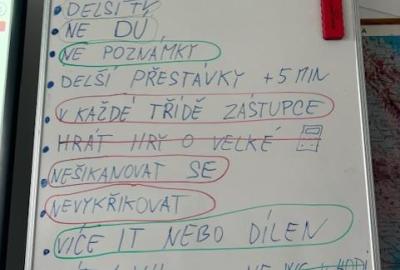 DELŠÍ TV
NE DU
NE POZNÁMKY
DELŠÍ PŘESTÁVKY +5 MIN
V KAŽDÉ TŘÍDĚ ZÁSTUPCE
HRÁT HRY O VELKÉ
NEŠIKANOVAT SE
NEVYKŘIKOVAT
VÍCE IT NEBO DÍLEN